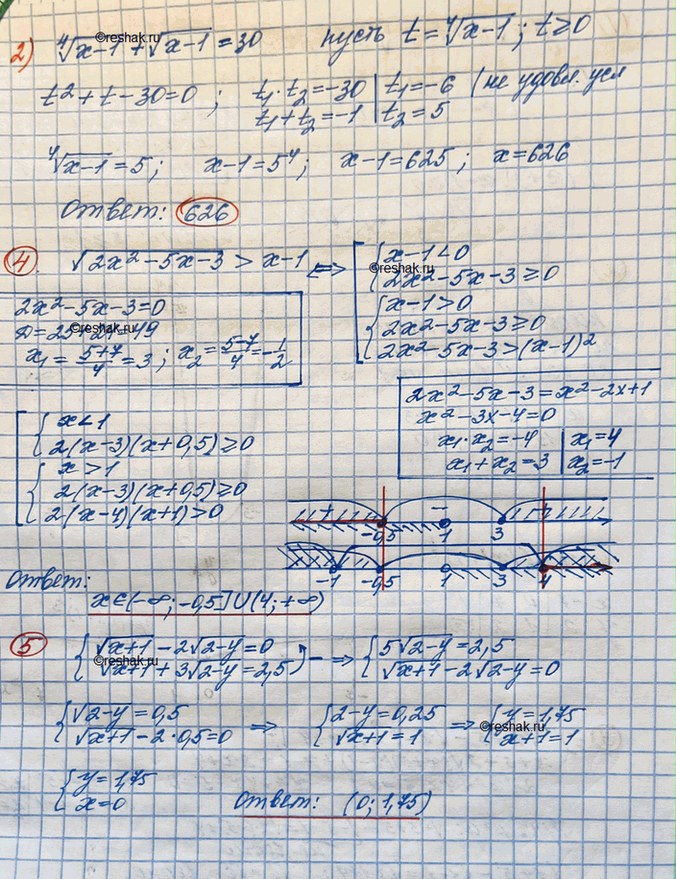 2) ⁴√x-1 + √x-1 = 30 пусть t = ⁴√x-1; t≥0
©reshak.ru
t² + t - 30 = 0; t₁·t₂ = -30 | t₁ = -6 (не удовл. усл
t₁+t₂ = -1 | t₂ = 5
⁴√x-1 = 5; x-1 = 5⁴; x-1 = 625; x = 626
Ответ: 626
4. √2x²-5x-3 > x-1 <=> [ { x-1<0
©reshak.ru
2x²-5x-3≥0
{ x-1>0
2x²-5x-3≥0
2x²-5x-3>(x-1)²
2x²-5x-3=0
D=25+24=49
©reshak.ru
x₁ = 5+7/4 = 3; x₂ = 5-7/4 = -1/2
2x²-5x-3 = x²-2x+1
x²-3x-4=0
x₁·x₂ = -4 | x₁ = 4
x₁+x₂ = 3 | x₂ = -1
[ { x<1
2(x-3)(x+0,5)≥0
{ x>1
2(x-3)(x+0,5)≥0
2(x-4)(x+1)>0
+ - +
-0,5 1 3
-1 -0,5 1 3 4
Ответ:
x∈(-∞; -0,5]∪(4; +∞)
5 { √x+1 - 2√2-y = 0
√x+1 + 3√2-y = 2,5 ) - => { 5√2-y = 2,5
√x+1 - 2√2-y = 0
©reshak.ru
{ √2-y = 0,5
√x+1 - 2·0,5 = 0 => { 2-y = 0,25
√x+1 = 1 => { y = 1,75
x+1 = 1
©reshak.ru
{ y = 1,75
x = 0
Ответ: (0; 1,75)